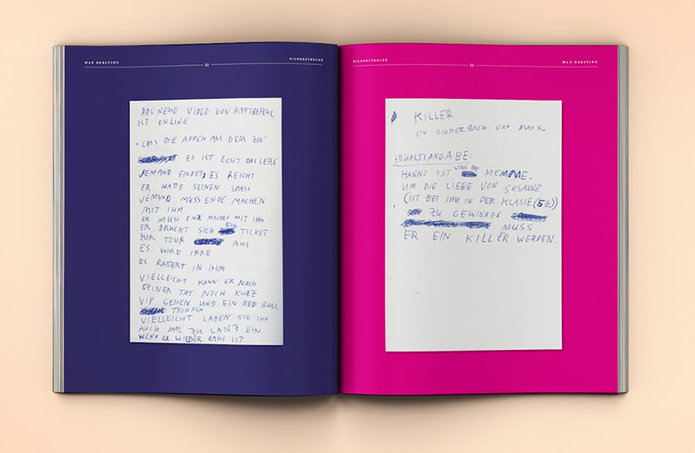 MAX KERSTING
52
BILDKRITZSCHE
DAS NEUE VIDEO VON HAFTBEFEHL
IST ONLINE
„LASS DIE AFFEN AUS DEM ZOO"
ES IST ECHT DAS LETZTE
JEMAND FINDET, ES REICHT
ER HATTE SEINEN SPASS
JEMAND MUSS ENDE MACHEN
MIT IHM
ER MUSS ENDE MACHEN MIT IHM
ER DRUCKT SICH EIN TICKET
ZUR TOUR AUS
ES WIRD IRRE
ES RATTERT IN IHM
VIELLEICHT KANN ER NACH
SEINER TAT NOCH KURZ
VIP GEHEN UND EIN RED BULL
TRINKEN
VIELLEICHT LADEN SIE IHN
AUCH MAL ZU LANZ EIN
WENN ER WIEDER RAUS IST
MAX KERSTING
KILLER
EIN KINDERBUCH VON MAX K.
INHALTSANGABE:
HANNO IST VOLL DIE MEMME.
UM DIE LIEBE VON SUSANNE
(IST BEI IHM IN DER KLASSE (5b))
ZU GEWINNEN
MUSS
ER EIN KILLER WERDEN.